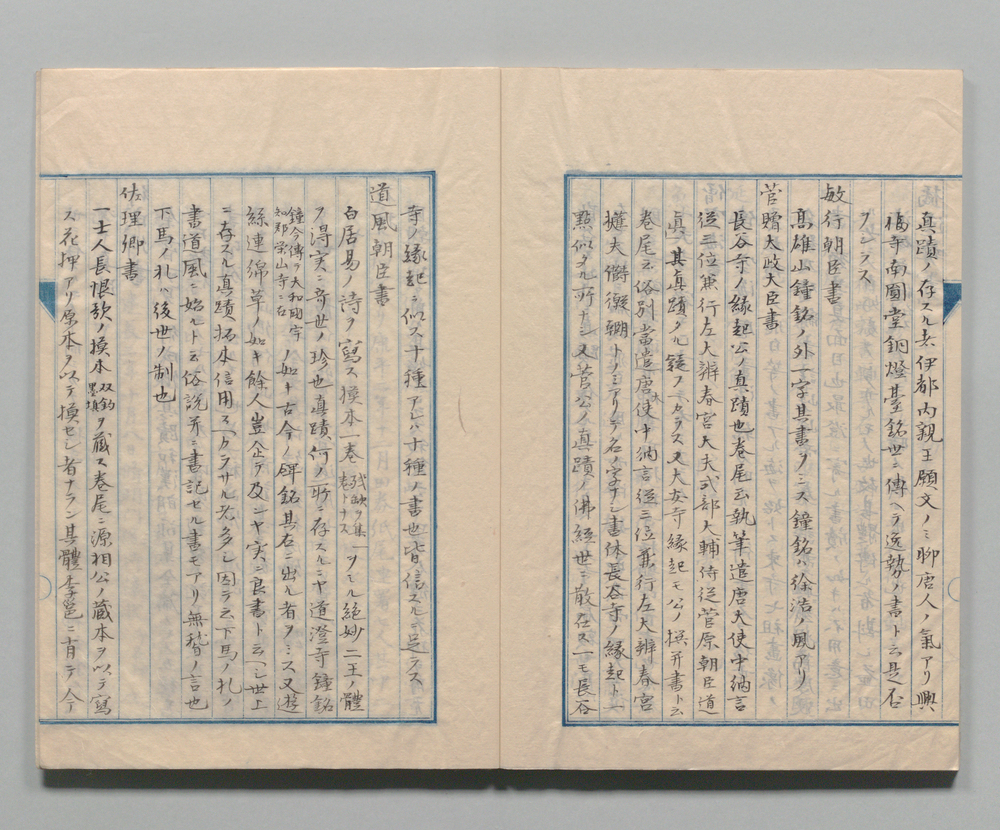 真蹟ノ存スル者伊都内親王願文ノミ聊唐人ノ氣アリ興
福寺南圓堂銅燈臺銘世ニ傳ヘテ逸勢ノ書ト云是否
ヲシラス
敏行朝臣書
高雄山鐘銘ノ外一字其書ヲミス鐘銘ハ徐浩ノ風アリ
菅贈大政大臣書
長谷寺ノ縁起公ノ真蹟也卷尾云執筆遣唐大使中納言
從三位兼行左大辨春宮大夫式部大輔侍從菅原朝臣道
真ト其真蹟タル疑フヘカラス又大安寺縁起モ公ノ撰并書ト云
卷尾ニ俗別當遣唐大使中納言從三位兼行左大辨春宮
權大夫トノミアリテ名ノ字ナシ書体長谷寺ノ縁起ト一
點似タル所ナシ又菅公ノ真蹟ノ佛經世ニ散在ス一モ長谷
寺ノ縁起ニ似ス十種アレハ十種ノ書也皆信スルニ足ラス
道風朝臣書
白居易ノ詩ヲ寫ス摸本一卷残缺ヲ集一卷トナスヲミル絶妙二王ノ體
ヲ得実ニ奇世ノ珍也真蹟何ノ所ニ存スルニヤ道澄寺鐘銘
鐘今傳ヲ大和國宇知郡栄山寺ニ在ノ如キ古今ノ銘其右ニ出ル者ヲミス又遊
絲連綿草ノ如キ餘人豈企テ及ンヤ実ニ良書ト云ヘシ世上
ニ存スル真蹟拓本信用スヘカラサル者多シ因テ云下馬ノ札ノ
書道風ニ始ルト云俗説并ニ書記セル書モアリ無稽ノ言也
下馬ノ札ハ後世ノ制也
佐理卿書
一士人長恨歌ノ摸本双鈎墨填ヲ蔵ス卷尾ニ源相公ノ蔵本ヲ以テ寫
ス花押アリ原本ヲ以テ摸セシ者ナラン其體李邕ニ肖テ今